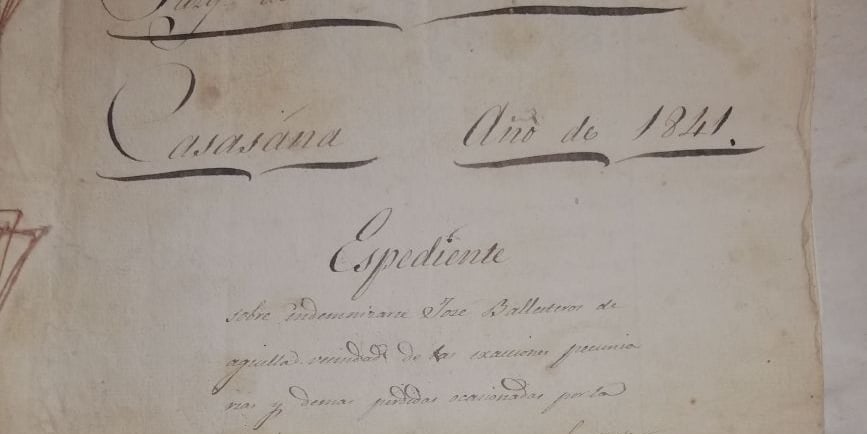 Casasána Año de 1841.
Espediente
sobre indemnizarse José Ballesteros de
aquella vecindad de las exacciones pecunia
rias y demas perdidas ocasionadas por la